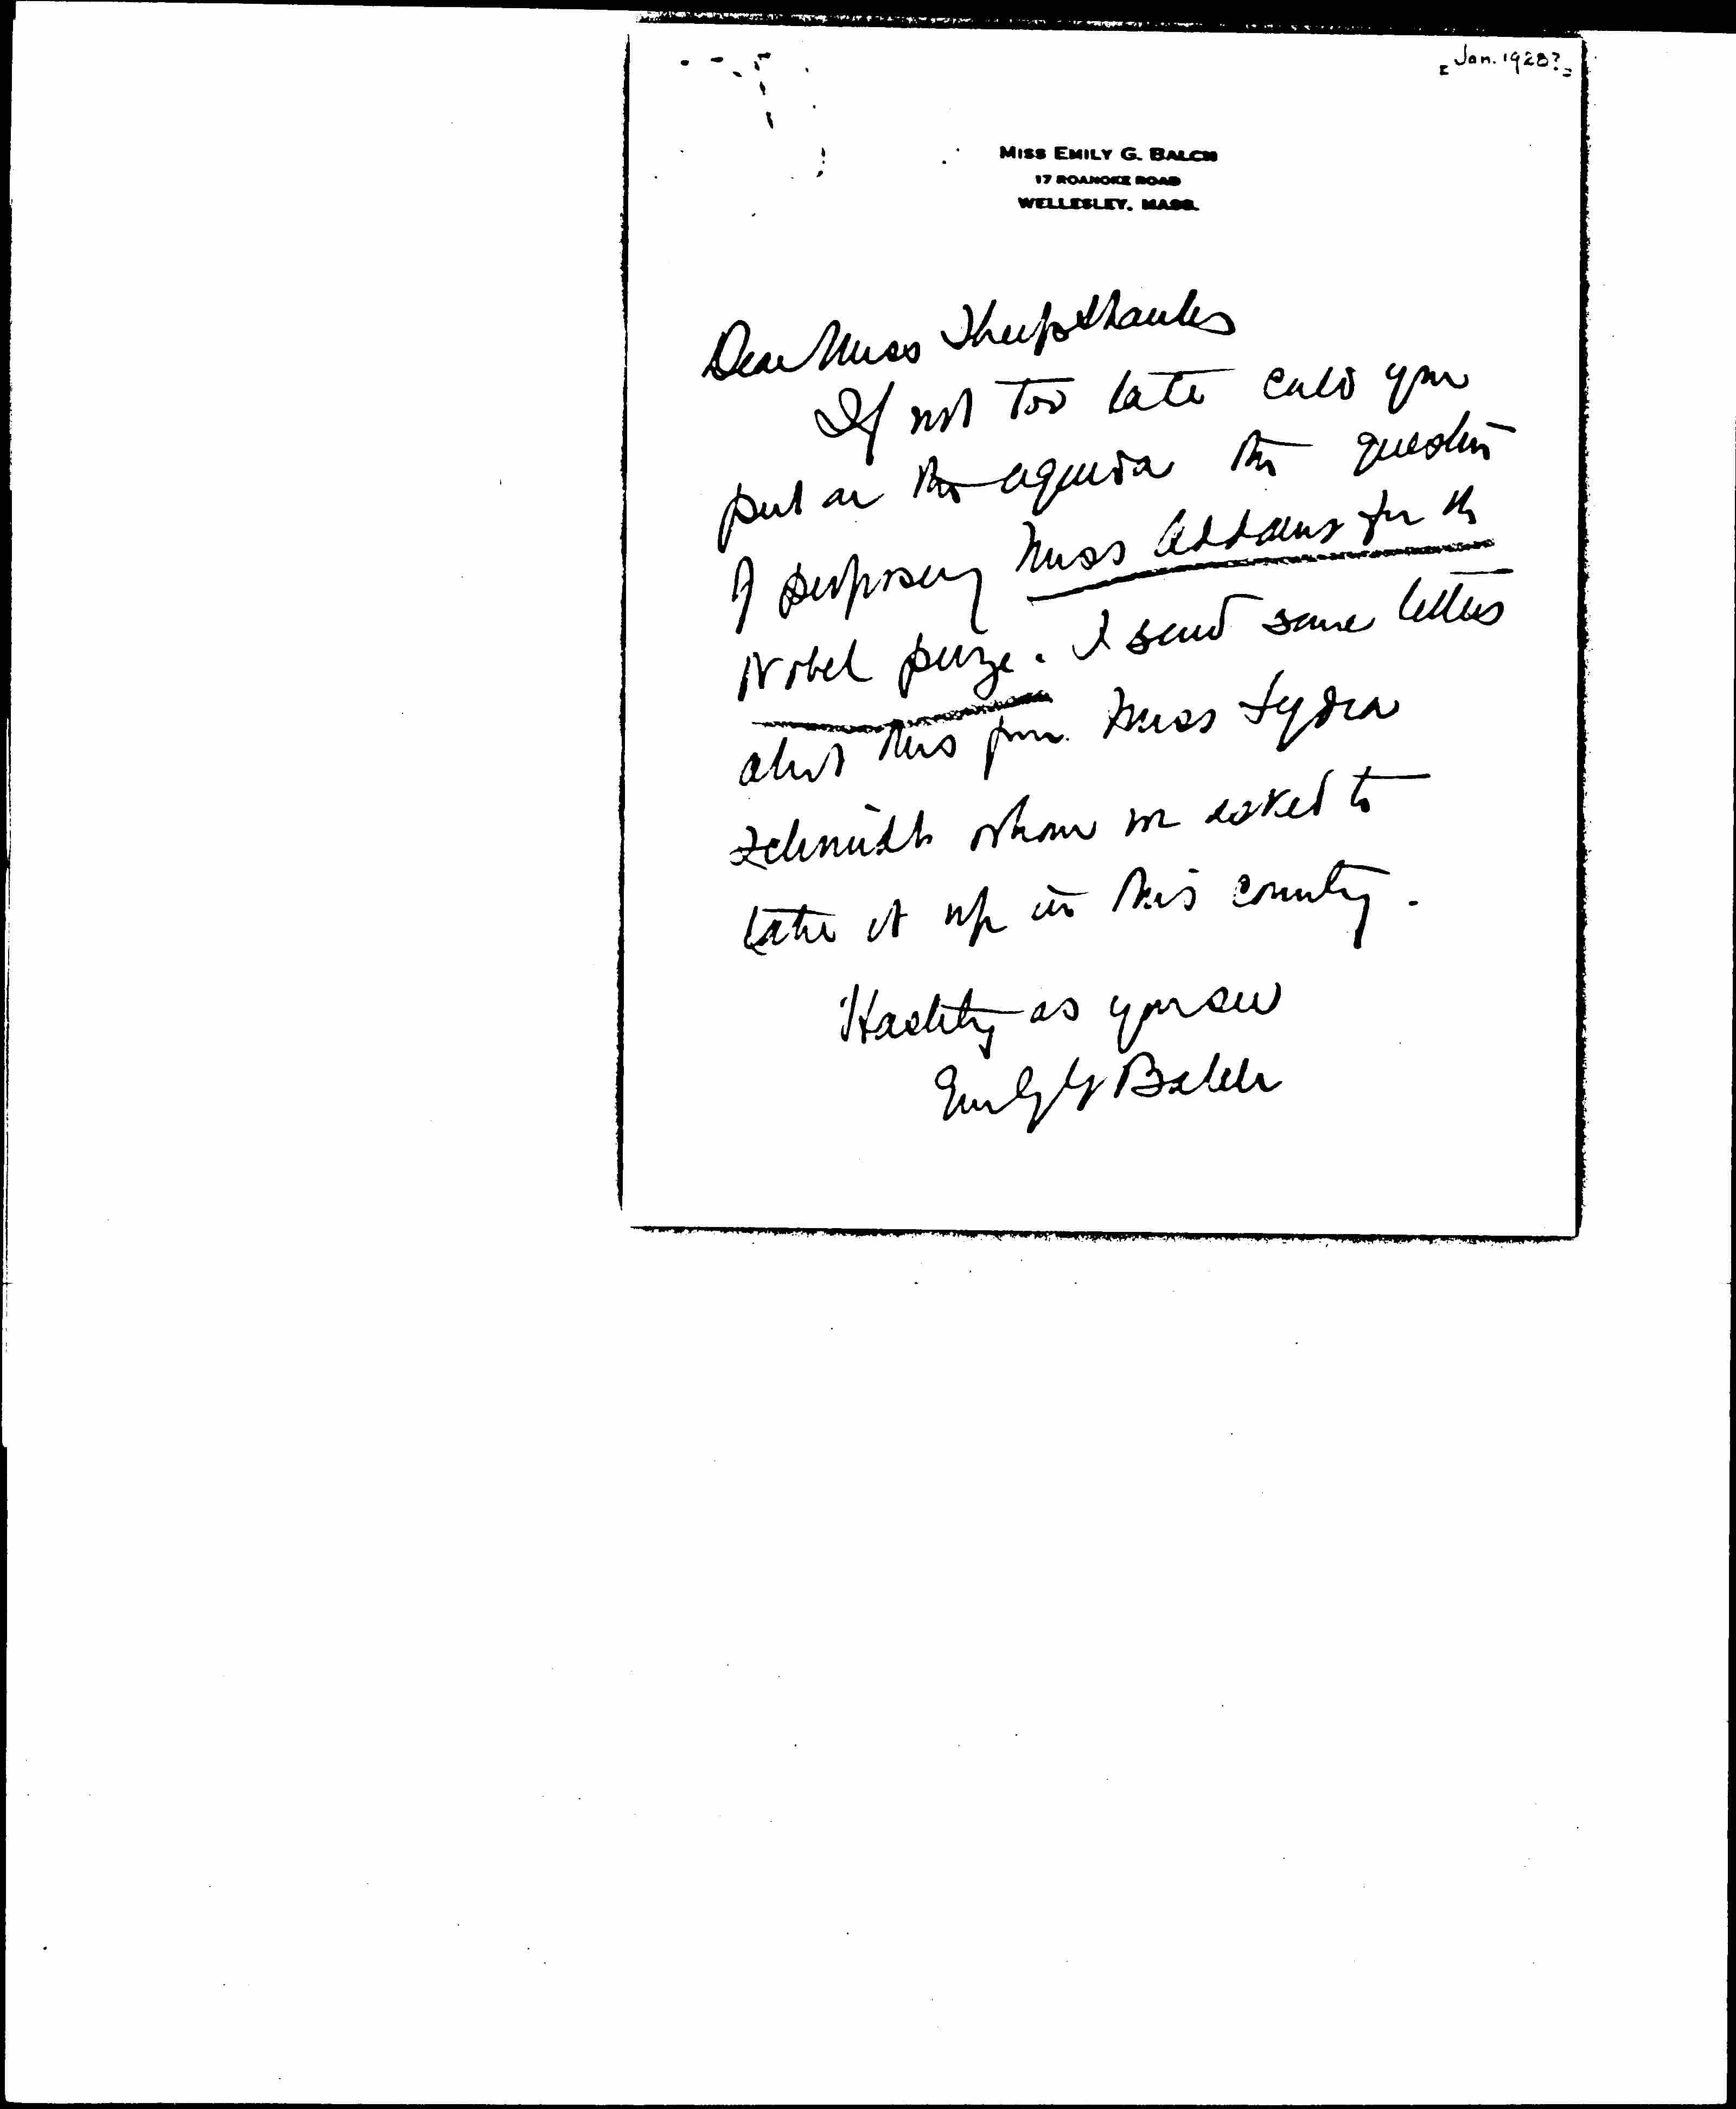 [Jan. 1928?]
MISS EMILY G. BALCH
17 ROANOKE ROAD
WELLESLEY, MASS.
Dear Miss Sheepshanks
If not too late could you
put on the agenda the question
of proposing Miss Addams for the
Nobel prize. I send some letters
about this from Miss Lydia
Schmidt whom we asked to
take it up in this country.
Hastily as you see
Emily G Balch